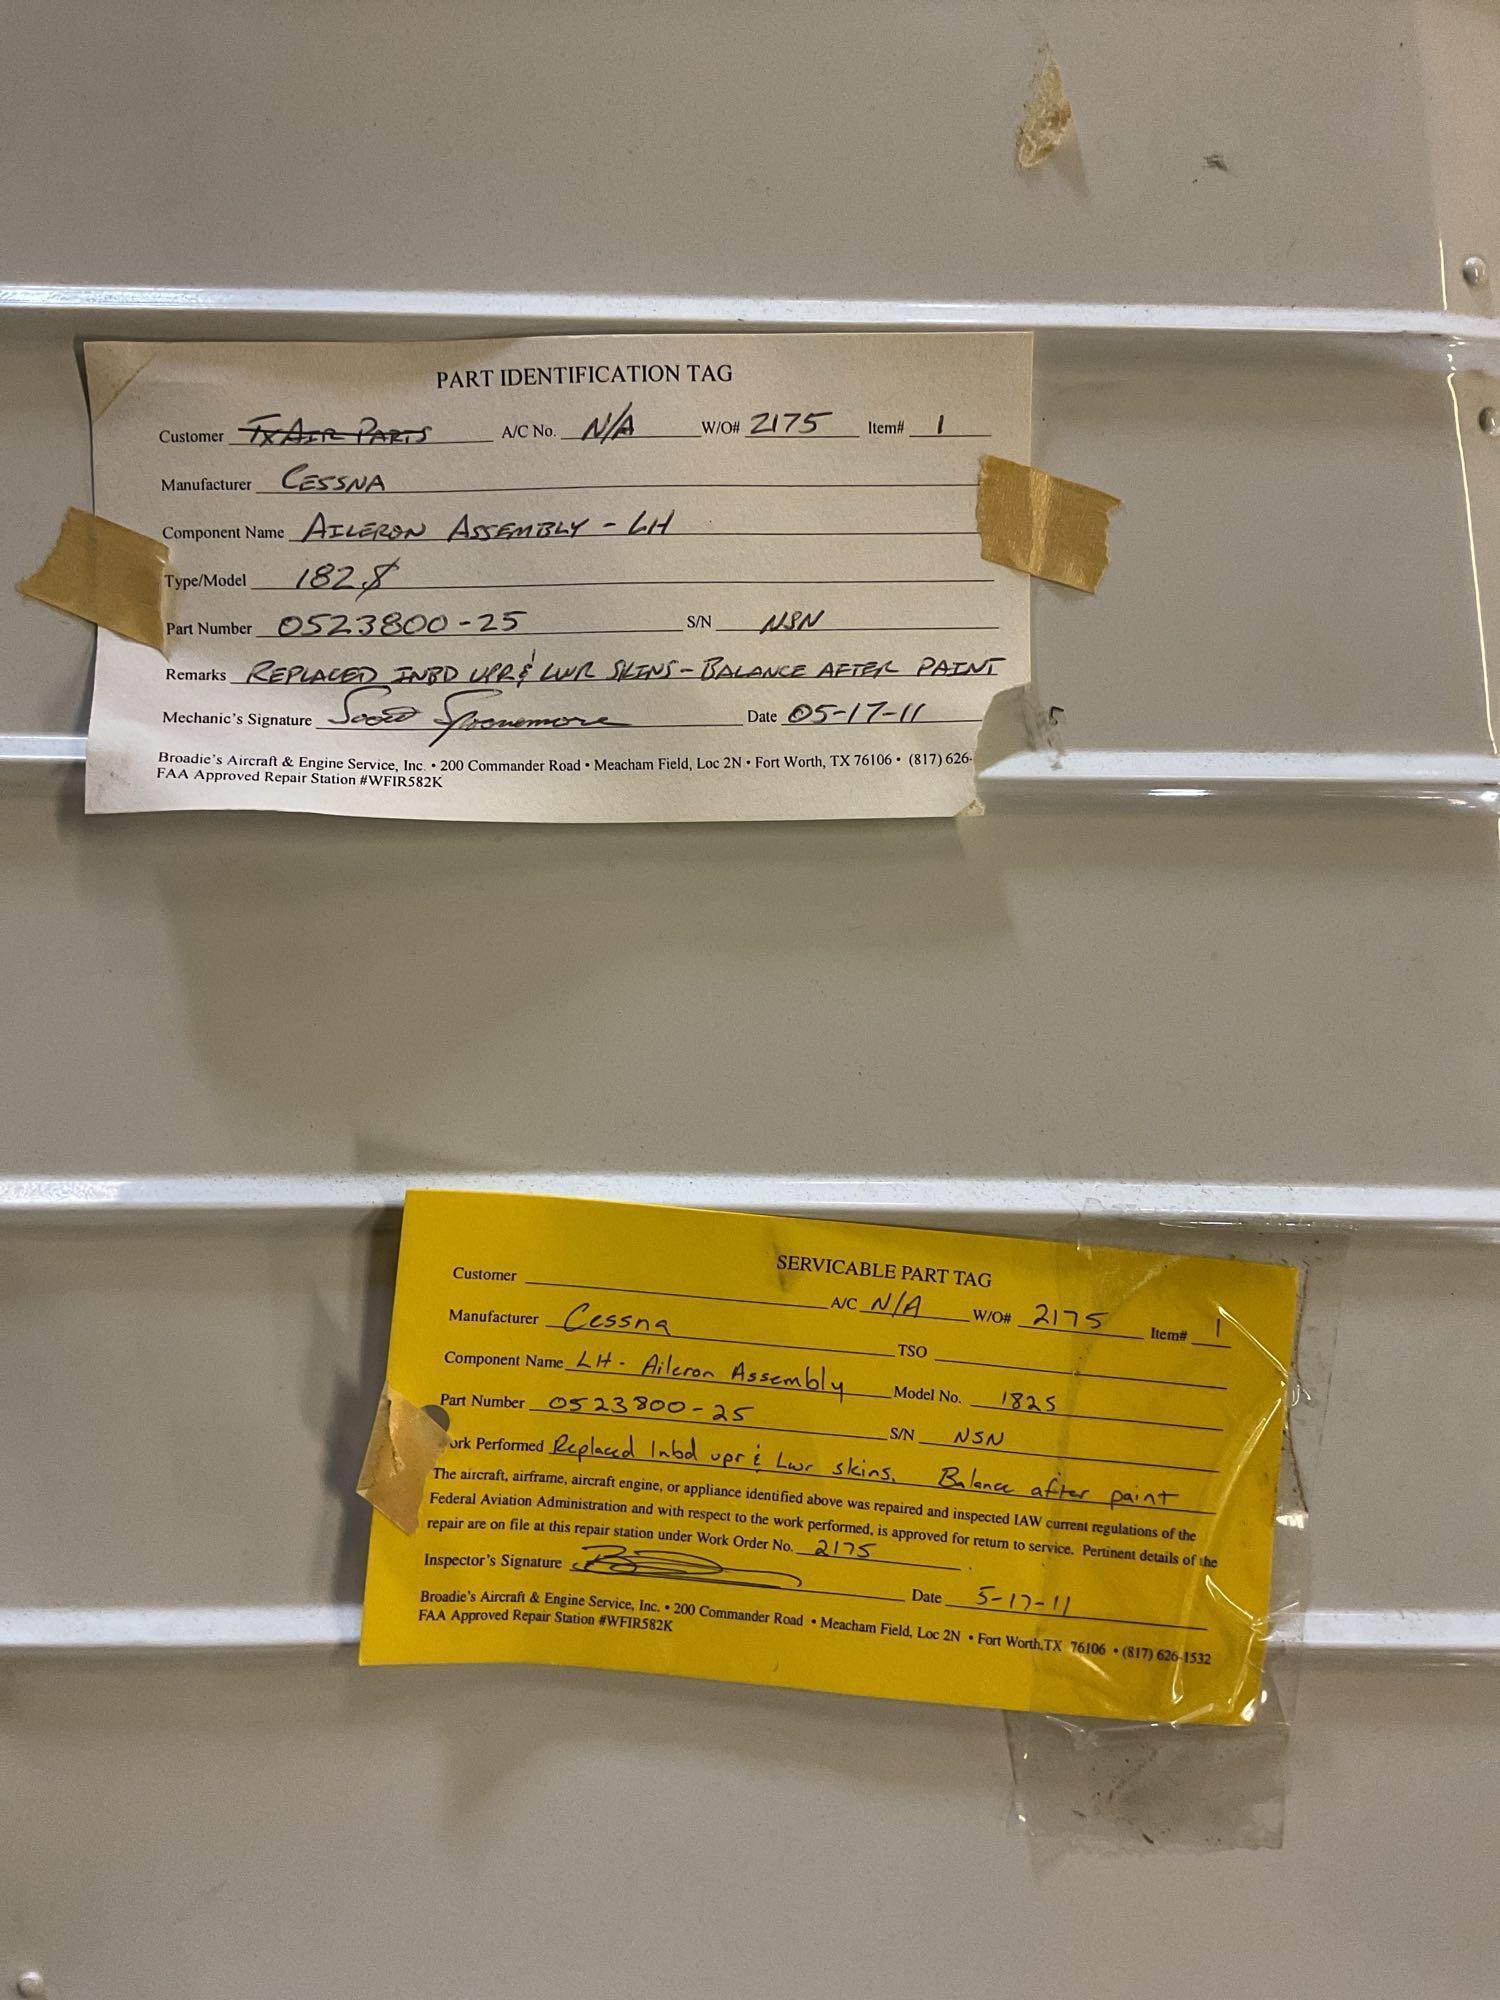 PART IDENTIFICATION TAG
Customer TX AIR PARTS A/C No. N/A W/O# 2175 Item# 1
Manufacturer CESSNA
Component Name AILERON ASSEMBLY - LH
Type/Model 182S
Part Number 0523800-25 S/N NSN
Remarks REPLACED INBD UPR & LWR SKINS - BALANCE AFTER PAINT
Mechanic's Signature Scott Date 05-17-11
Broadie's Aircraft & Engine Service, Inc. • 200 Commander Road • Meacham Field, Loc 2N • Fort Worth, TX 76106 • (817) 626-
FAA Approved Repair Station #WFIR582K
SERVICABLE PART TAG
Customer A/C N/A W/O# 2175 Item# 1
Manufacturer Cessna TSO
Component Name LH - Aileron Assembly Model No. 182S
Part Number 0523800-25 S/N NSN
ork Performed Replaced Inbd upr & Lwr skins. Balance after paint
The aircraft, airframe, aircraft engine, or appliance identified above was repaired and inspected IAW current regulations of the
Federal Aviation Administration and with respect to the work performed, is approved for return to service. Pertinent details of the
repair are on file at this repair station under Work Order No. 2175
Inspector's Signature Date 5-17-11
Broadie's Aircraft & Engine Service, Inc. • 200 Commander Road • Meacham Field, Loc 2N • Fort Worth, TX 76106 • (817) 626-1532
FAA Approved Repair Station #WFIR582K